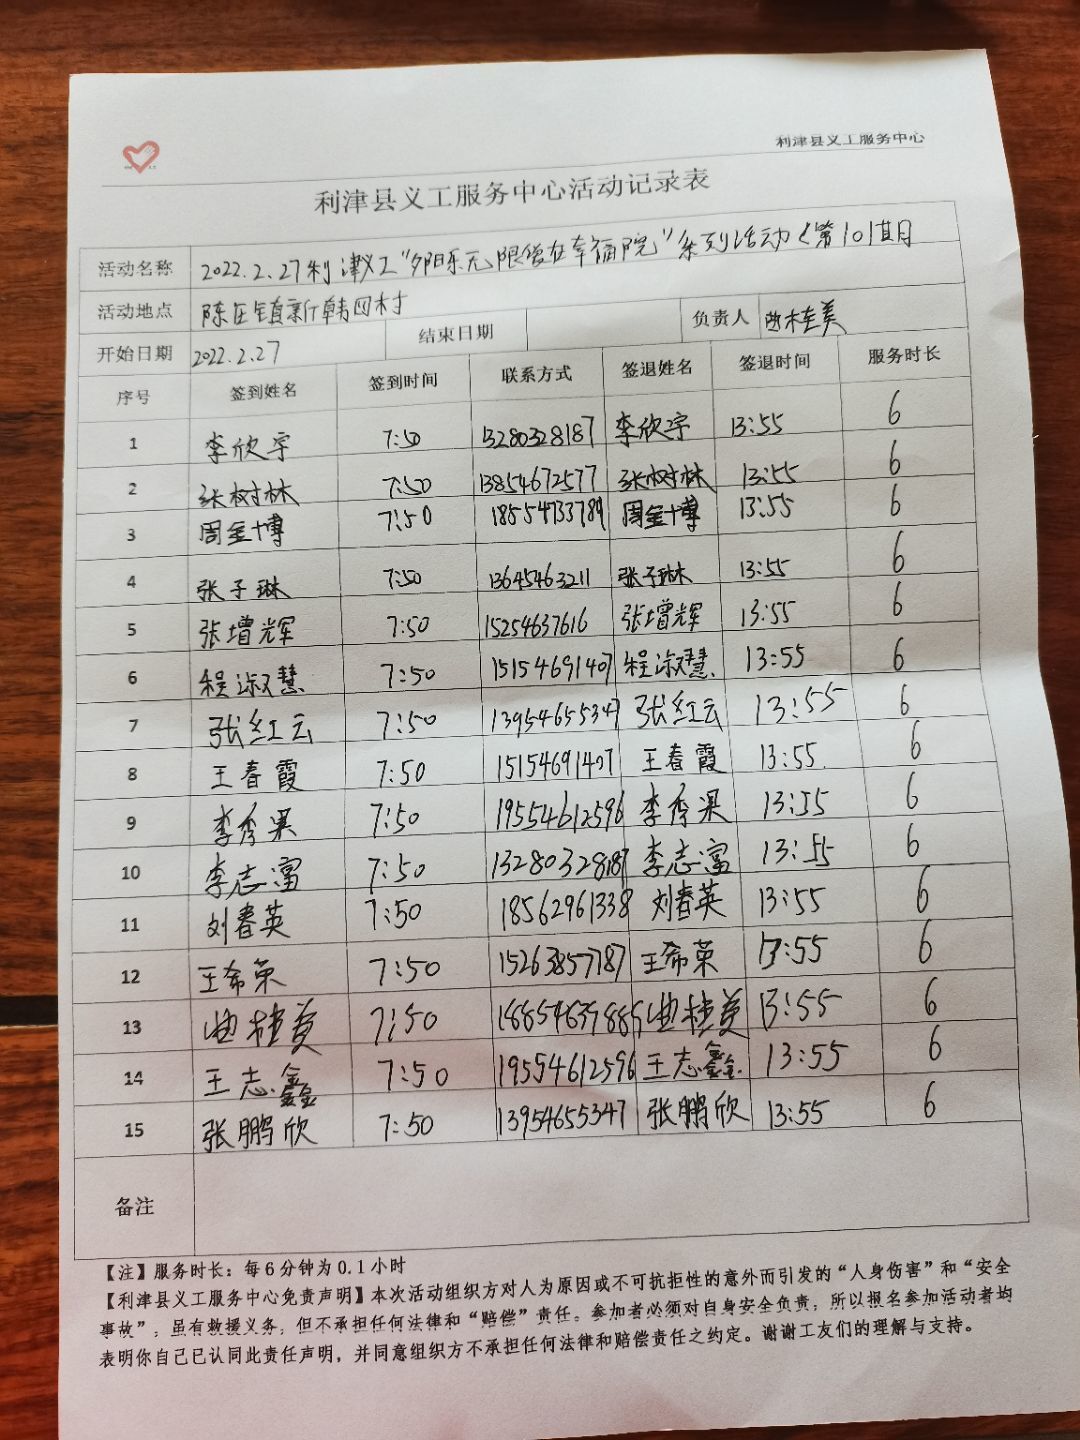 利津县义工服务中心
利津县义工服务中心活动记录表
活动名称 2022.2.27利津义工“夕阳乐无限爱在幸福院”系列活动《第101期
活动地点 陈庄镇新韩四村
开始日期 2022.2.27 结束日期 负责人 曲桂美
序号 签到姓名 签到时间 联系方式 签退姓名 签退时间 服务时长
1 李欣宇 7:50 13280328187 李欣宇 13:55 6
2 张树林 7:50 13854672577 张树林 13:55 6
3 周金博 7:50 18554733789 周金博 13:55 6
4 张子琳 7:50 13645463211 张子琳 13:55 6
5 张增辉 7:50 15254637616 张增辉 13:55 6
6 程淑慧 7:50 15154691407 程淑慧 13:55 6
7 张红云 7:50 13954655347 张红云 13:55 6
8 王春霞 7:50 15154691407 王春霞 13:55 6
9 李秀果 7:50 19554612596 李秀果 13:55 6
10 李志富 7:50 13280328187 李志富 13:55 6
11 刘春英 7:50 18562961338 刘春英 13:55 6
12 王希荣 7:50 15263857187 王希荣 13:55 6
13 曲桂美 7:50 曲桂美 13:55 6
14 王志鑫 7:50 19554612596 王志鑫 13:55 6
15 张鹏欣 7:50 13954655347 张鹏欣 13:55 6
备注
【注】服务时长：每6分钟为0.1小时
【利津县义工服务中心免责声明】本次活动组织方对人为原因或不可抗拒性的意外而引发的“人身伤害”和“安全
事故”，虽有救援义务，但不承担任何法律和“赔偿”责任。参加者必须对自身安全负责，所以报名参加活动者均
表明你自己已认同此责任声明，并同意组织方不承担任何法律和赔偿责任之约定。谢谢工友们的理解与支持。